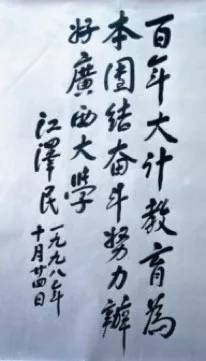 百年大计教育為
本團结奋斗努力辦
好廣西大學
江澤民
一九九八年
十月廿四日